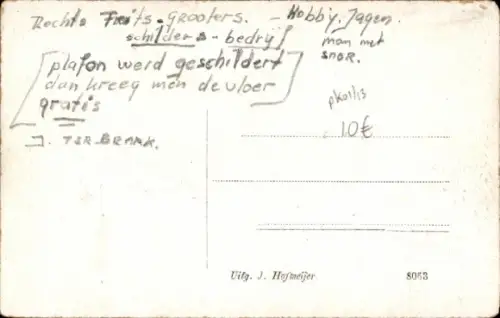 Rechts Frits-Grooters. - Hobby. Jagen.
schilders-bedrijf
man met
snor.
[plafon werd geschildert
dan kreeg men de vloer
gratis]
J. TER-BRAAK.
10€
Uitg. J. Hofmeijer 8063